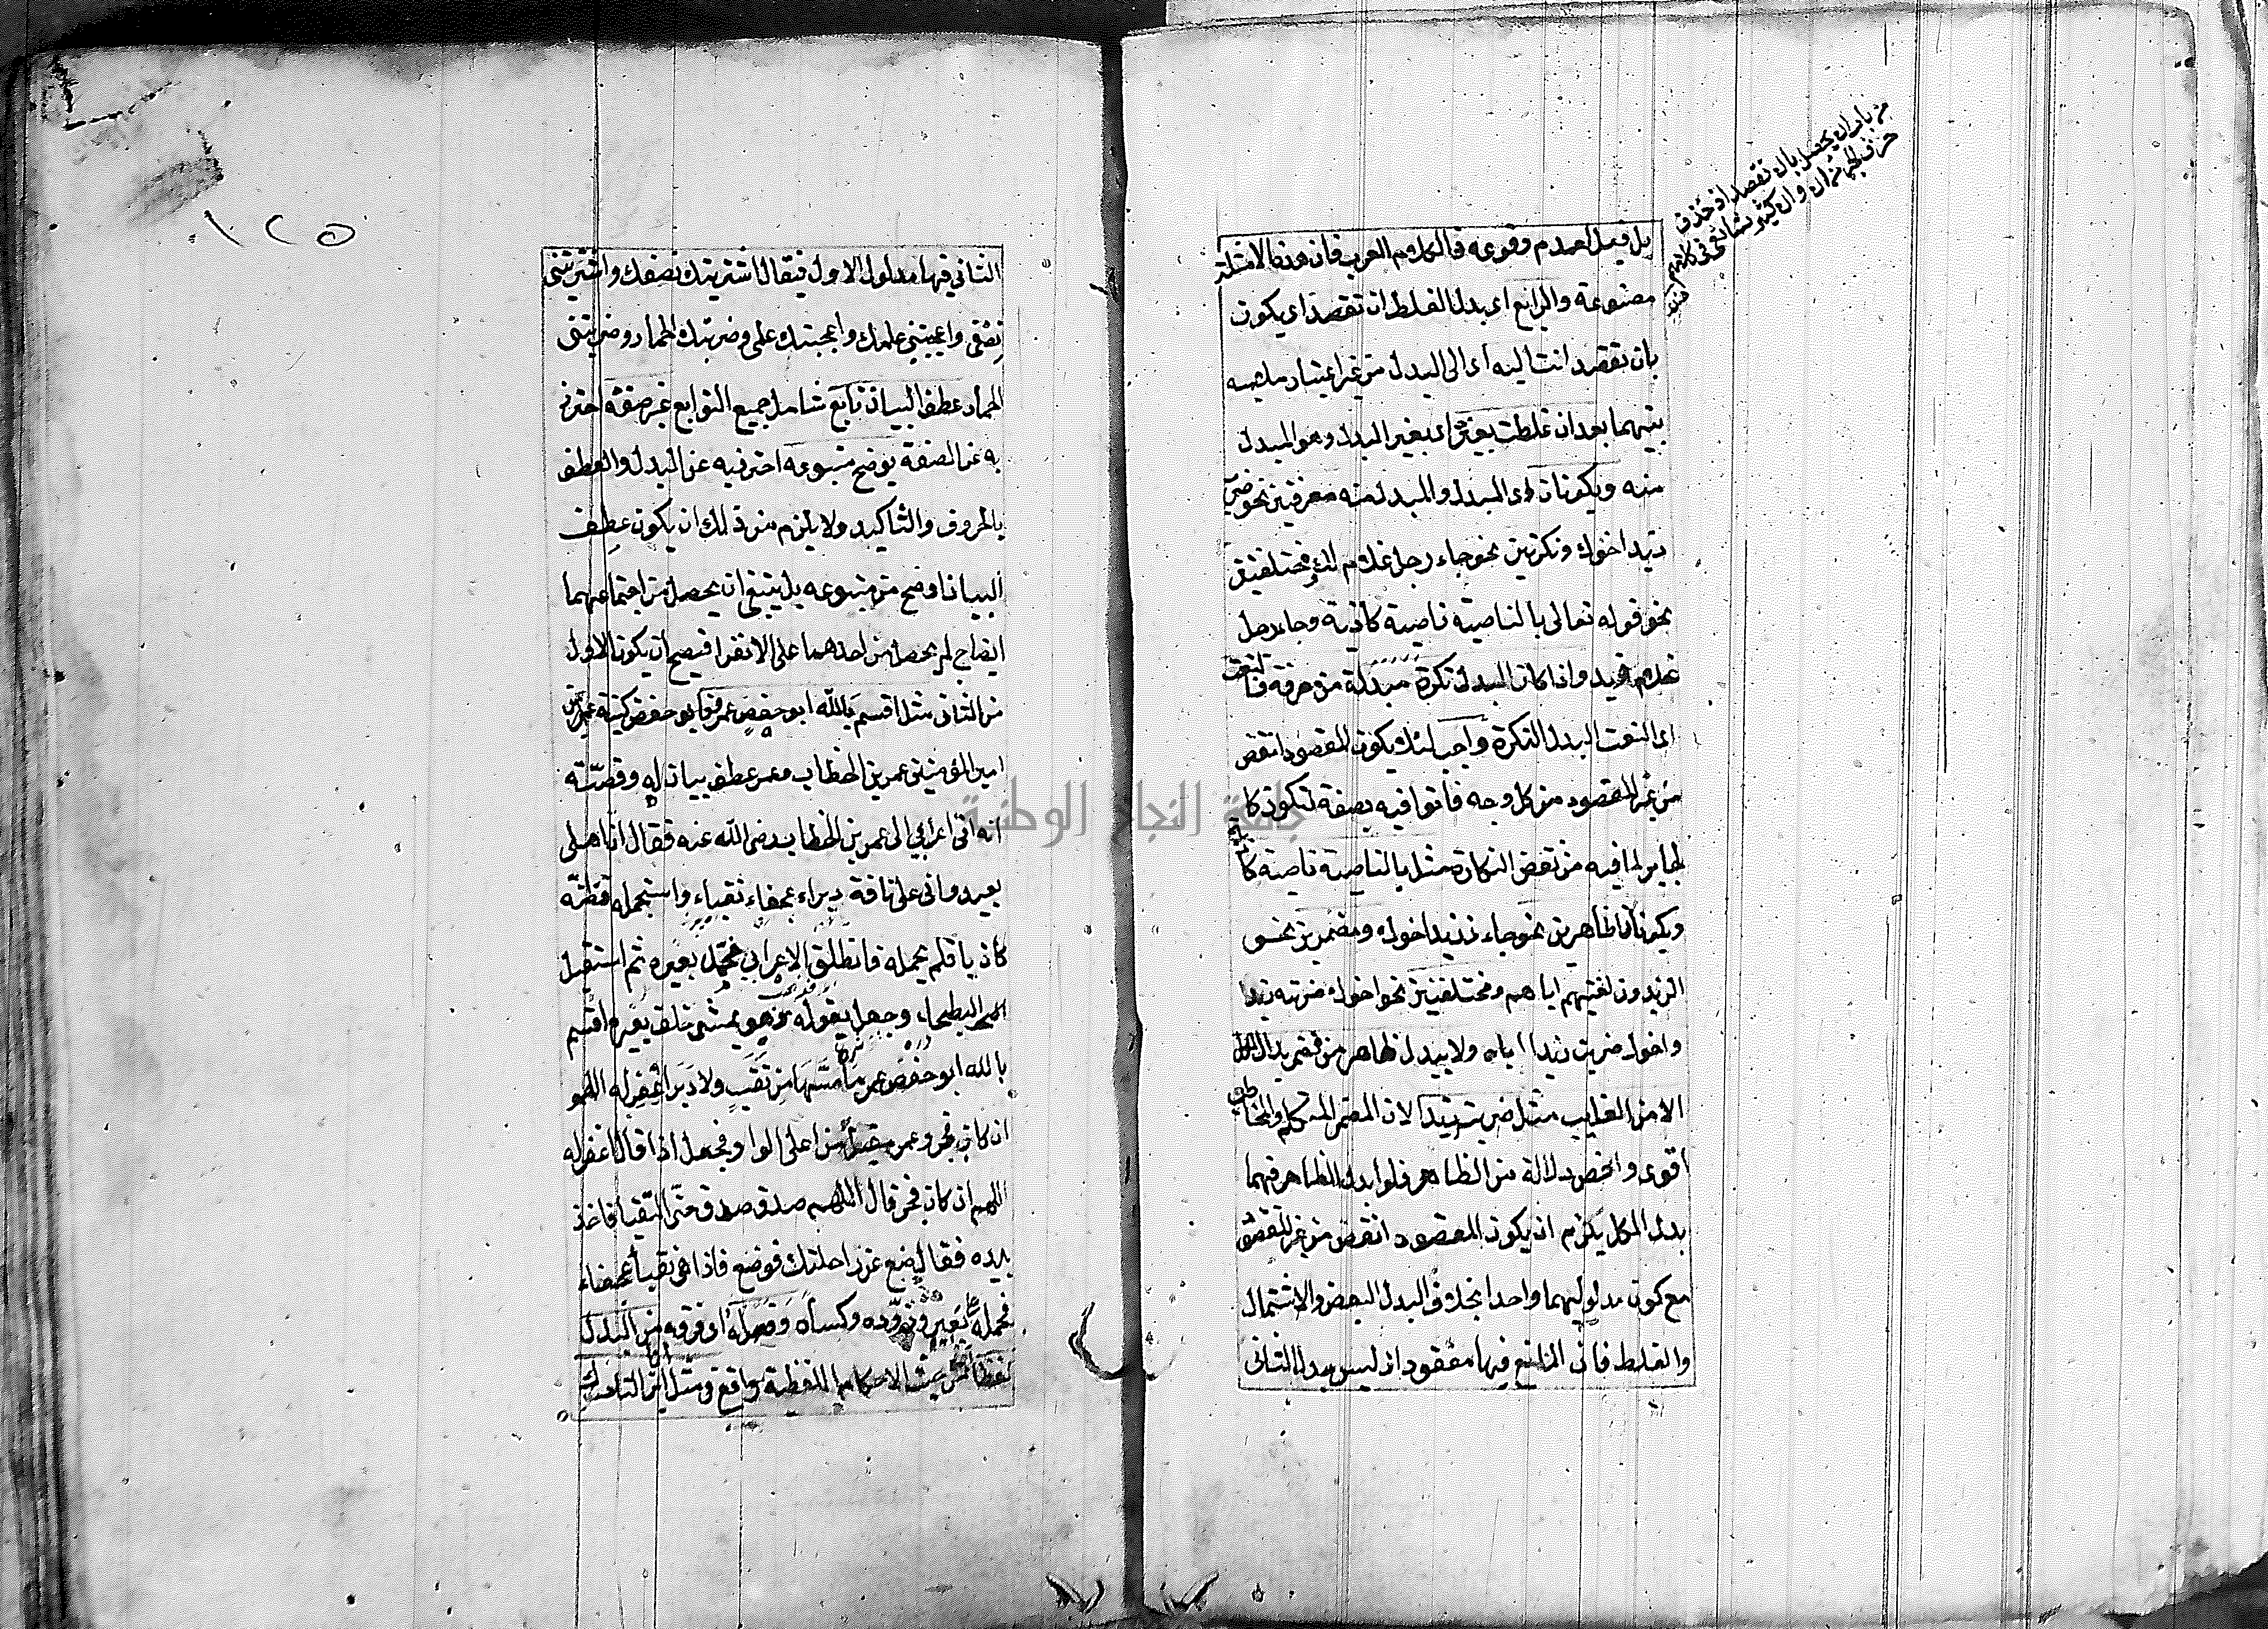 بل قيل لعدم وقوعه في كلام العرب فان هذه الامثلة
مصنوعة والرابع اى بدل الغلط ان تقصد اى يكون
بان تقصد انت اليه اى الى البدل من غير اعتبار ملابسة
بينهما بعد ان غلطت بغيره اى بغير البدل وهو المبدل
منه ويكونان اى البدل والمبدل منه معرفتين نحو ضرب
زيد اخوك ونكرتين نحو جاء رجل غلام لك ومختلفين
نحو قوله تعالى بالناصية ناصية كاذبة وجاء رجل
غلام زيد واذا كان البدل نكرة مبدلة من معرفة فالنعت
اى النعت البدل النكرة واجب لئلا يكون المقصود انقص
من غير المقصود من كل وجه فاتوا فيه بصفة لتكون كا
لجابر لما فيه من نقص النكارة مثل بالناصية ناصية كاذبة
ويكونان ظاهرين نحو جاء زيد اخوك ومضمرين نحو
الزيدون لقيتهم اياهم ومختلفين نحو اخوك ضربته زيدا
واخوك ضربت زيدا اياه ولا يبدل ظاهر من مضمر بدل الكل
الا من الغايب مثل ضربته زيدا لان المضمر المتكلم والمخاطب
اقوى واخص دلالة من الظاهر فلو ابدل الظاهر فيهما
بدل الكل يلزم ان يكون المقصود انقص من غير المقصود
مع كون مدلوليهما واحدا بخلاف البدل البعض والاشتمال
والغلط فان المانع فيها مفقود اذ ليس مدلول الثانى
من بان يحصل بان تقصد او حذف
حرف الجر من ان وان كثير شائع فى كلامهم
١٢٥
الثانى فيها مدلول الاول فيقال اشتريتك نصفك واشتريتنى
نصفى واعجبنى علمك واعجبتك علمى وضربتك الحمار وضربتنى
الحمار عطف البيان تابع شامل لجميع التوابع غير صفة احترز
به عن الصفة يوضح متبوعه احترز به عن البدل والعطف
بالحروف والتاكيد ولا يلزم من ذلك ان يكون عطف
البيان اوضح من متبوعه بل ينبغى ان يحصل من اجتماعهما
ايضاح لم يحصل من احدهما على الانفراد فيصح ان يكون الاول
من الثانى مثل اقسم بالله ابو حفص عمر فابو حفص كنية
امير المؤمنين عمر بن الخطاب وعمر عطف بيان له وقصته
انه اتى اعرابى الى عمر بن الخطاب رضى الله عنه فقال ان اهلى
بعيد وانى على ناقة دبراء عجفاء نقباء واستحمله فظنه
كاذبا فلم يحمله فانطلق الاعرابى فحمل بعيره ثم استقبل
البطحاء وجعل يقول وهو يمشى خلف بعيره اقسم
بالله ابو حفص عمر ما مسها من نقب ولا دبر اغفر له اللهم
ان كان فجر وعمر مقبل من اعلى الوادى فجعل اذا قال اغفر له
اللهم ان كان فجر قال اللهم صدق صدق حتى التقيا فاخذ
بيده فقال ضع عن راحلتك فوضع فاذا هى نقباء عجفاء
فحمله على بعير وزوده وكساه وفصله اى فرقه من البدل
لفظا من حيث الاحكام اللفظية واقع فى مثل انا ابن التارك